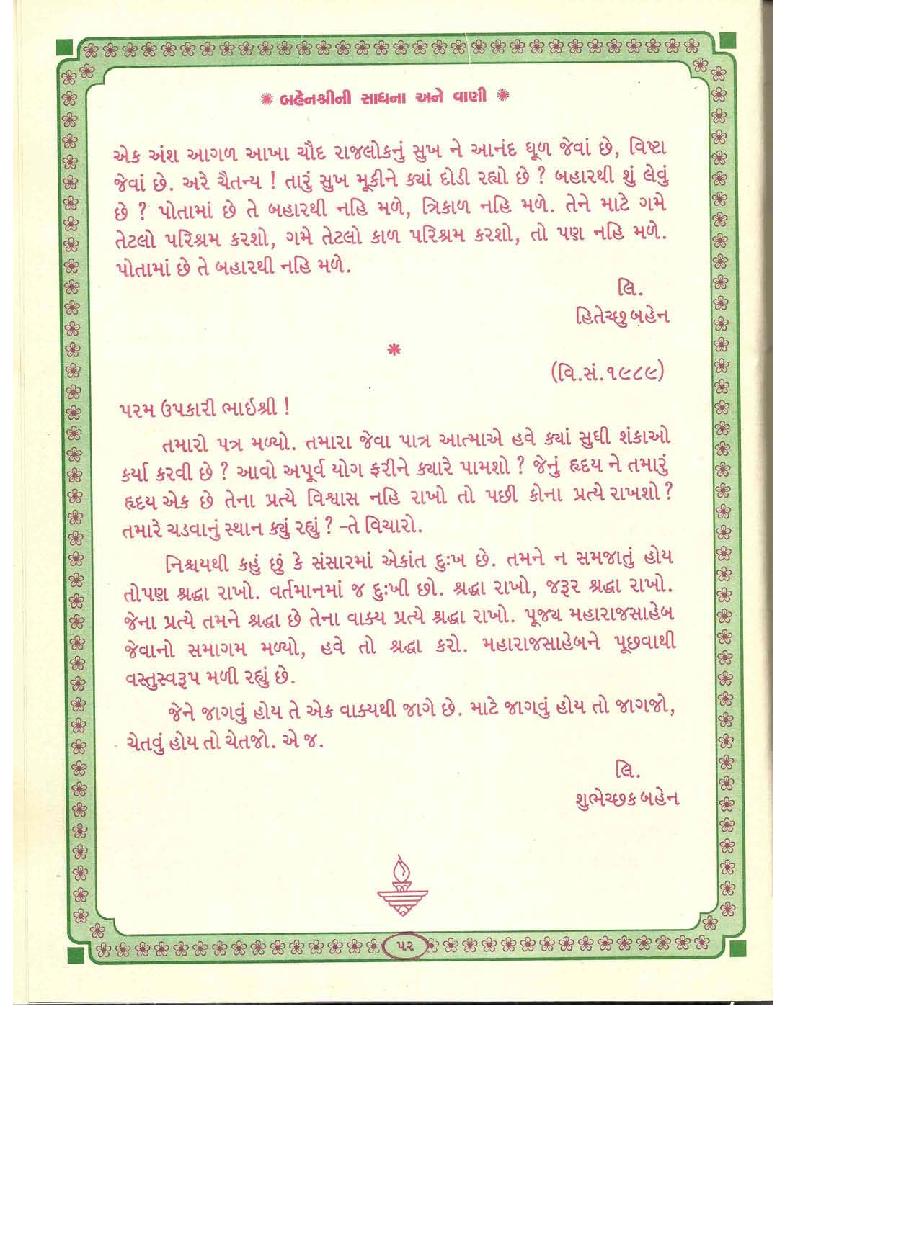 ❋ બહેનશ્રીની સાધના અને વાણી ❋
એક અંશ આગળ આખા ચૌદ રાજલોકનું સુખ ને આનંદ ધૂળ જેવાં છે, વિષ્ટા
જેવાં છે. અરે ચૈતન્ય ! તારું સુખ મૂકીને ક્યાં દોડી રહ્યો છે ? બહારથી શું લેવું
છે ? પોતામાં છે તે બહારથી નહિ મળે, ત્રિકાળ નહિ મળે. તેને માટે ગમે
તેટલો પરિશ્રમ કરશો, ગમે તેટલો કાળ પરિશ્રમ કરશો, તો પણ નહિ મળે.
પોતામાં છે તે બહારથી નહિ મળે.
લિ.
હિતેચ્છુ બહેન
❋
(વિ.સં.૧૯૮૯)
પરમ ઉપકારી ભાઇશ્રી !
તમારો પત્ર મળ્યો. તમારા જેવા પાત્ર આત્માએ હવે ક્યાં સુધી શંકાઓ
કર્યા કરવી છે ? આવો અપૂર્વ યોગ ફરીને ક્યારે પામશો ? જેનું હૃદય ને તમારું
હૃદય એક છે તેના પ્રત્યે વિશ્વાસ નહિ રાખો તો પછી કોના પ્રત્યે રાખશો ?
તમારે ચડવાનું સ્થાન ક્યું રહ્યું ? –તે વિચારો.
નિશ્ચયથી કહું છું કે સંસારમાં એકાંત દુઃખ છે. તમને ન સમજાતું હોય
તોપણ શ્રદ્ધા રાખો. વર્તમાનમાં જ દુઃખી છો. શ્રદ્ધા રાખો, જરૂર શ્રદ્ધા રાખો.
જેના પ્રત્યે તમને શ્રદ્ધા છે તેના વાક્ય પ્રત્યે શ્રદ્ધા રાખો. પૂજ્ય મહારાજસાહેબ
જેવાનો સમાગમ મળ્યો, હવે તો શ્રદ્ધા કરો. મહારાજસાહેબને પૂછવાથી
વસ્તુસ્વરૂપ મળી રહ્યું છે.
જેને જાગવું હોય તે એક વાક્યથી જાગે છે. માટે જાગવું હોય તો જાગજો,
ચેતવું હોય તો ચેતજો. એ જ.
લિ.
શુભેચ્છક બહેન
૫૨